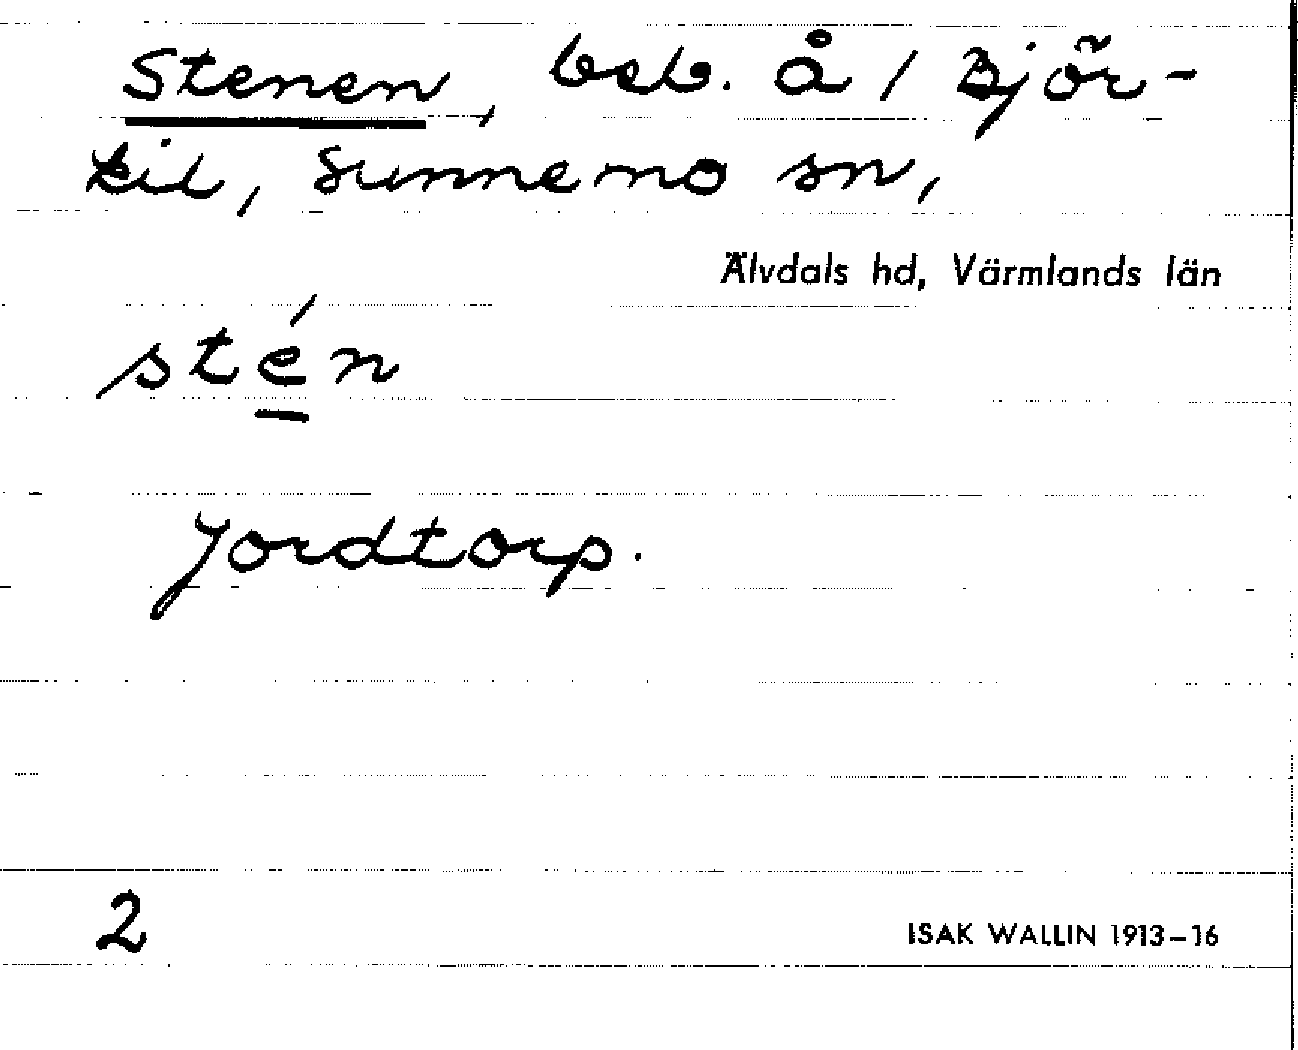 Stenen, beb. å 1 Björ-
kil, Sunnemo sn,
Älvdals hd, Värmlands län
sté̱n
Jordtorp.
2
ISAK WALLIN 1913–16